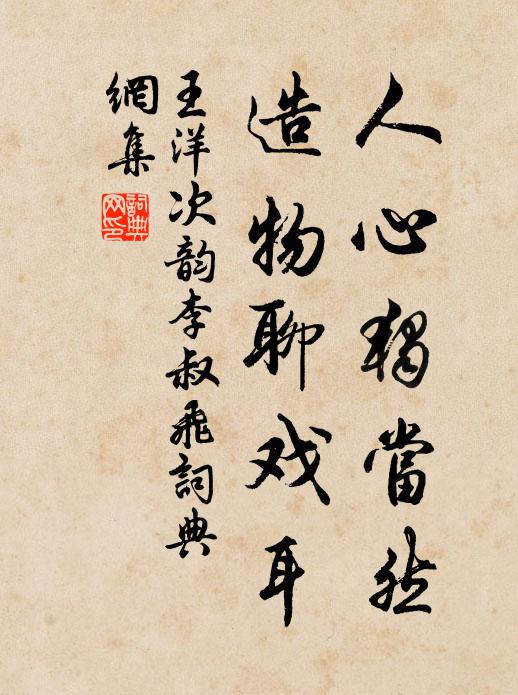 人心獨當然
造物聊戏耳
王洋次韵李叔飛詞典
網集
詞典
网印